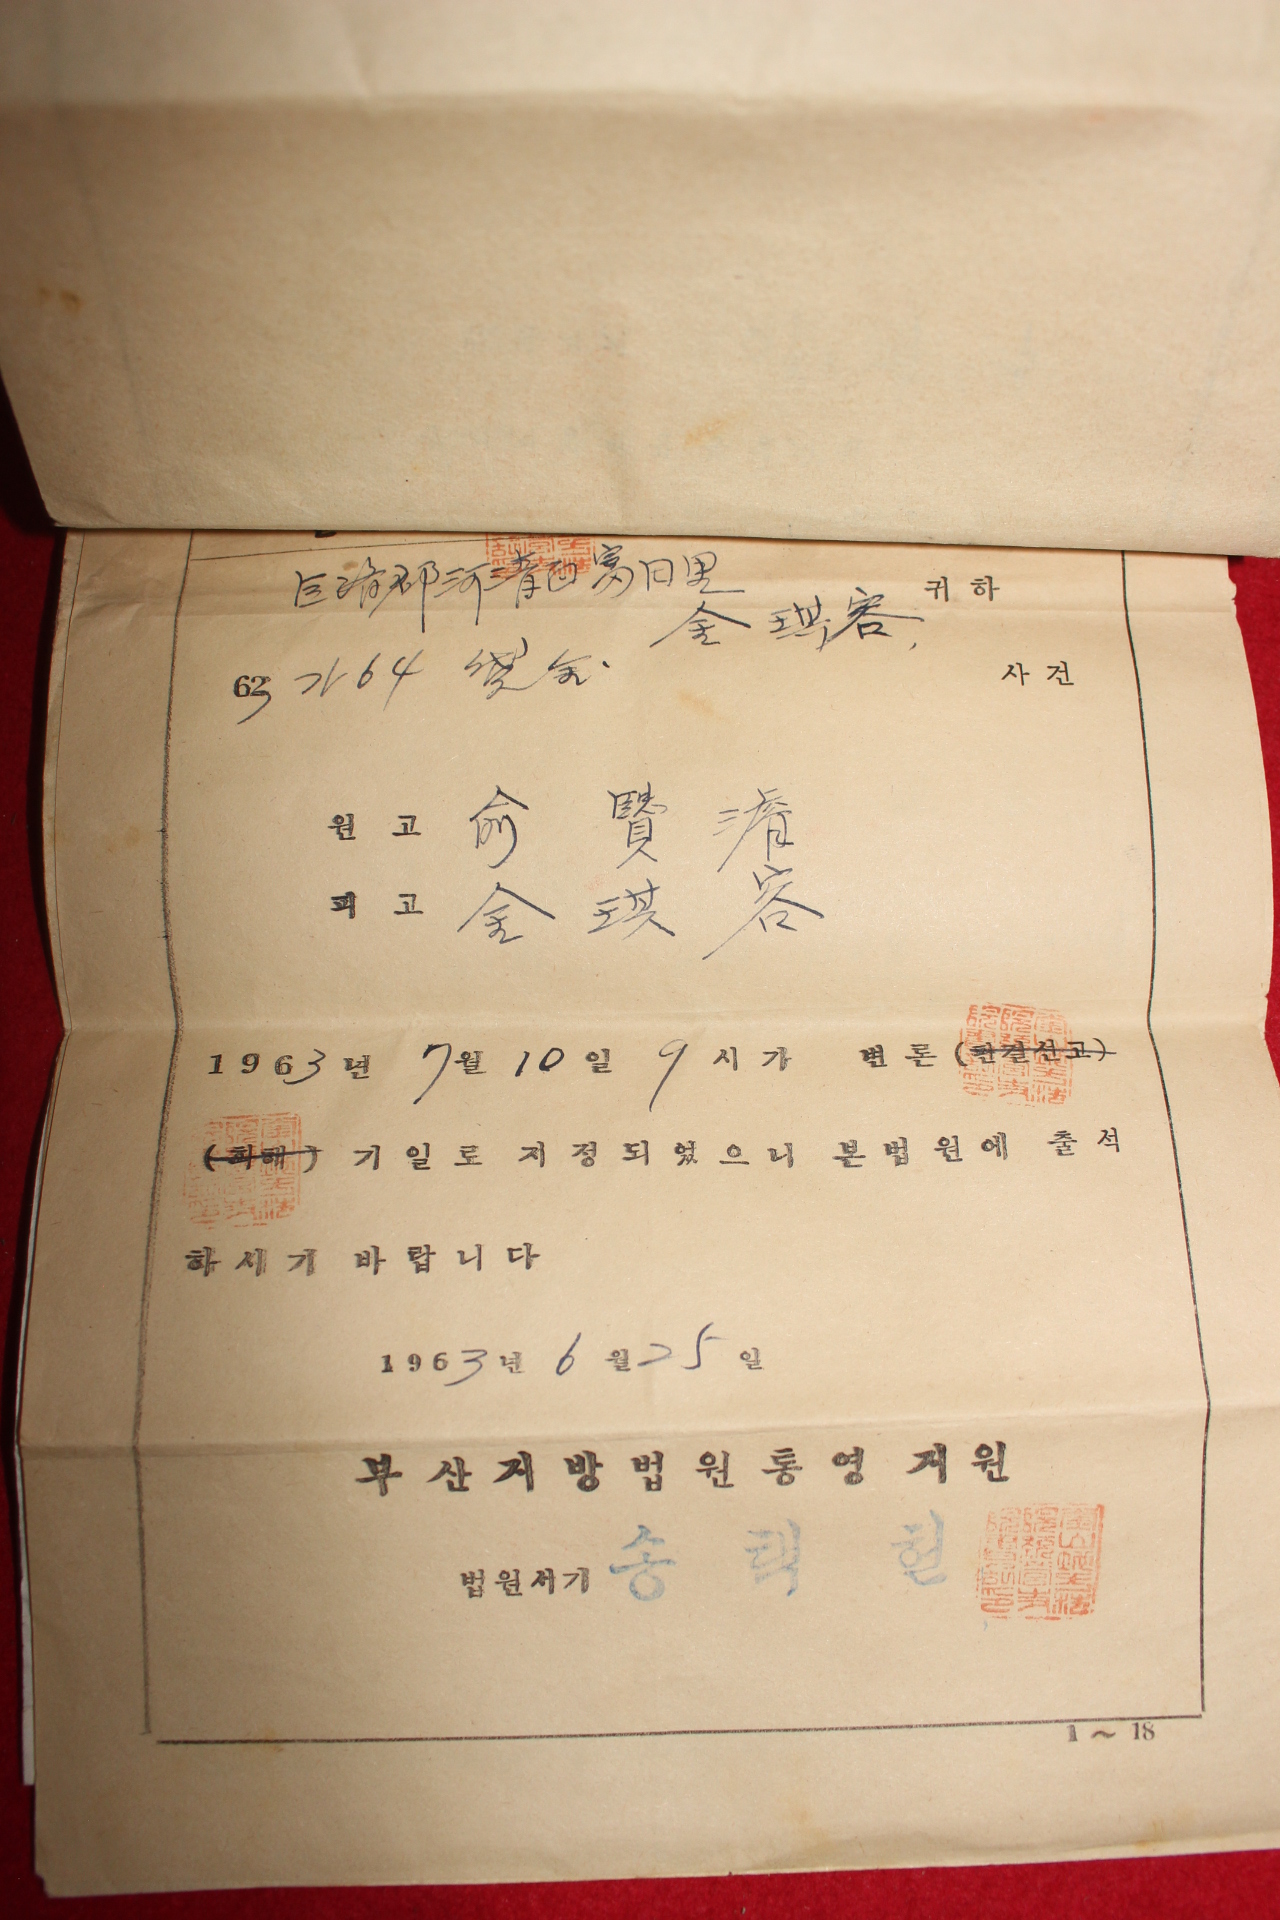 巨濟郡河淸面 日里
金琪容 귀하
63 가 64 金 사건
원고 兪賢濬
피고 金琪容
1963년 7월 10일 9시가 변론 (판결선고)
(화해) 기일로 지정되었으니 본법원에 출석
하시기 바랍니다
1963년 6월 25일
부산지방법원통영지원
법원서기 송택헌
1 ~ 18